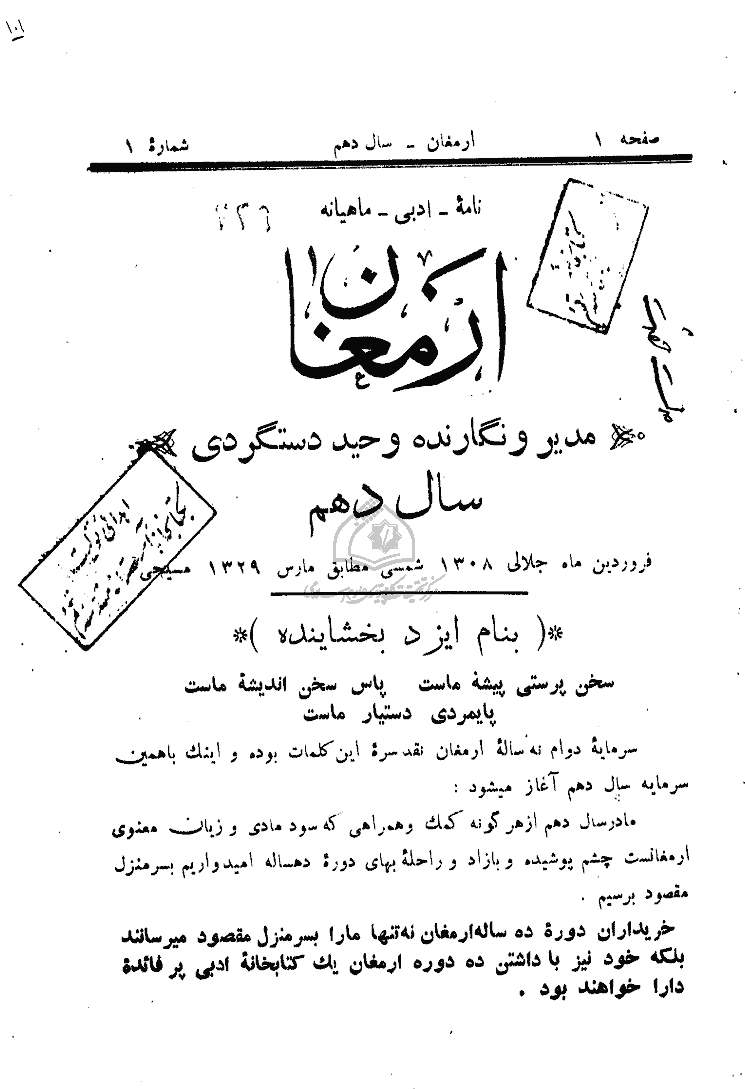 ۱۰۱
صفحه ۱ ارمغان ـ سال دهم شمارهٔ ۱
نامهٔ ـ ادبی ـ ماهیانه
ارمغان
مدیر و نگارنده وحید دستگردی
سال دهم
فروردین ماه جلالی ۱۳۰۸ شمسی مطابق مارس ۱۳۲۹ مسیحی
*( بنام ایزد بخشاینده )*
سخن پرستی پیشهٔ ماست پاس سخن اندیشهٔ ماست
پایمردی دستیار ماست
سرمایهٔ دوام نه سالهٔ ارمغان نقد سرهٔ این کلمات بوده و اینك باهمین
سرمایه سال دهم آغاز میشود :
مادرسال دهم ازهر گونه کمك وهمراهی که سود مادی و زیان معنوی
ارمغانست چشم پوشیده و بازاد و راحلهٔ بهای دورهٔ دهساله امیدواریم بسرمنزل
مقصود برسیم .
خریداران دورهٔ ده ساله‌ارمغان نه‌تنها مارا بسرمنزل مقصود میرسانند
بلکه خود نیز با داشتن ده دوره ارمغان یك کتابخانهٔ ادبی پر فائدهٔ
دارا خواهند بود .